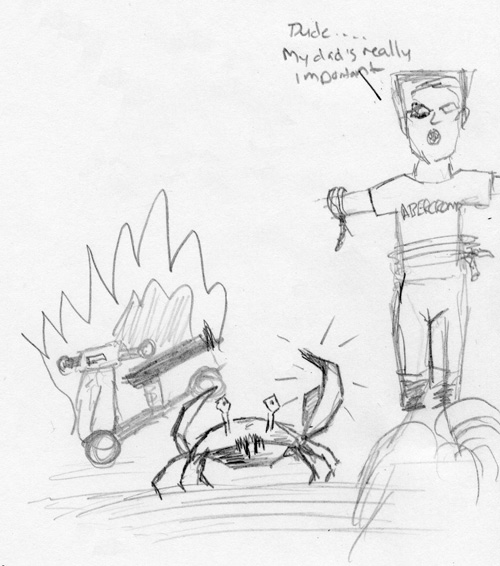 Dude....
My dad's really
important
ABERCROMB